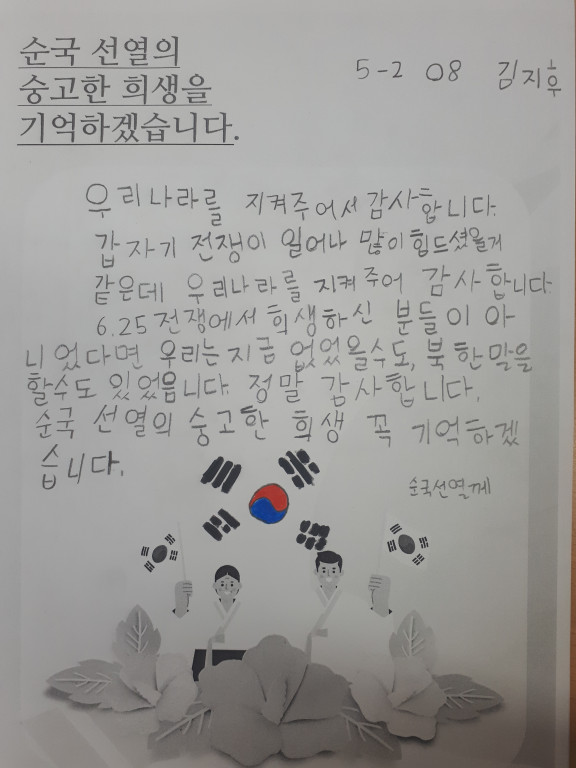 순국 선열의
숭고한 희생을
기억하겠습니다.
5-2 08 김지후
우리나라를 지켜주어서 감사합니다.
갑자기 전쟁이 일어나 많이 힘드셨을게
같은데 우리나라를 지켜주어 감사합니다.
6.25 전쟁에서 희생하신 분들이 아
니었다면 우리는 지금 없었을수도, 북한말을
할수도 있었읍니다. 정말 감사합니다.
순국 선열의 숭고한 희생 꼭 기억하겠
습니다.
순국선열께